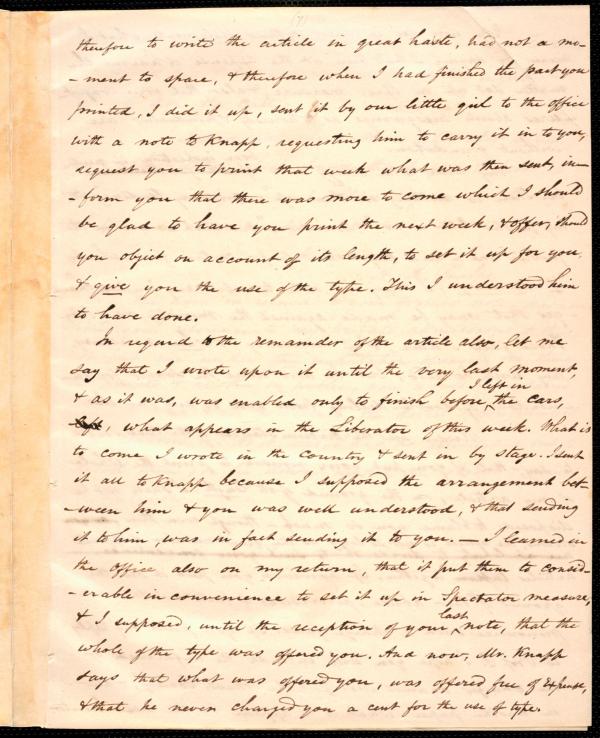 therefore to write the article in great haste, had not a mo-
-ment to spare, & therefore when I had finished the part you
printed, I did it up, sent it by our little girl to the office
with a note to Knapp, requesting him to carry it in to you,
request you to print that week what was then sent, in-
-form you that there was more to come which I should
be glad to have you print the next week, & offer, should
you object on account of its length, to set it up for you
& give you the use of the type. This I understood him
to have done.
In regard to the remainder of the article also, let me
say that I wrote upon it until the very last moment,
& as it was, was enabled only to finish before I left in the cars,
left, what appears in the Liberator of this week. What is
to come I wrote in the country & sent in by stage. I sent
it all to Knapp because I supposed the arrangement bet-
-ween him & you was well understood, & that sending
it to him, was in fact sending it to you. — I learned in
the office also on my return, that it put them to consid-
-erable in convenience to set it up in Spectator measure,
& I supposed, until the reception of your last note, that the
whole of the type was offered you. And now, Mr. Knapp
says that what was offered you, was offered free of expense,
& that he never charged you a cent for the use of type.